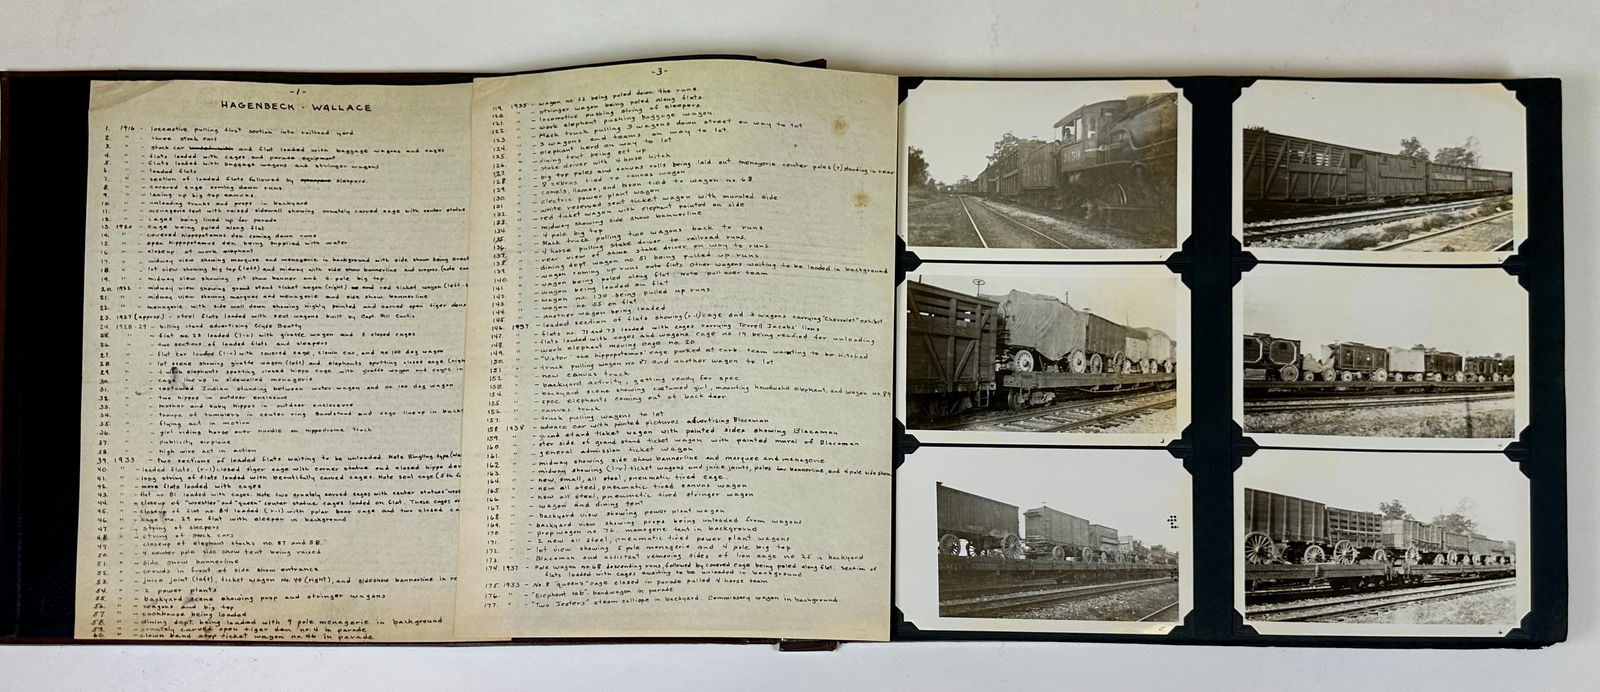 -1-
HAGENBECK - WALLACE
1. 1916 - locomotive pulling first section into railroad yard
2. " - three stock cars
3. " - stock car and flat loaded with baggage wagons and cages
4. " - flats loaded with cages and parade equipment
5. " - flats loaded with baggage wagons and stringer wagons
6. " - loaded flats
7. " - section of loaded flats followed by sleepers
8. " - covered cage coming down runs
9. " - lacing up big top canvas
10. " - unloading trucks and props in backyard
11. " - menagerie tent with raised sidewall showing ornately carved cage with center statue
12. " - cages being lined up for parade
13. 1920 - cage being poled along flat
14. " - covered hippopotamus den coming down runs
15. " - open hippopotamus den being supplied with water
16. " - closeup of work elephant
17. " - midway view showing marquee and menagerie in background with side show being
18. " - lot view showing big top (left) and midway with side show bannerline and wagons (note
19. " - midway view showing pit show banner and 4-pole big top
20. 1922 - midway view showing grand stand ticket wagon (right) and red ticket wagon (left
21. " - midway view showing marquee and menagerie and side show bannerline
22. " - menagerie with side wall down giving highly painted and carved open tiger dens
23. 1927 (approx.) - steel flats loaded with seat wagons built by Capt. Bill Curtis
24. 1928-29 - billing stand advertising Clyde Beatty
25. " - flat no. 28 loaded (l-r) with giraffe wagon and 3 closed cages
26. " - two sections of loaded flats and sleepers
27. " - flat car loaded (l-r) with covered cage, clown car, and no. 100 dog wagon
28. " - lot scene showing giraffe wagon (left) and elephants spotting closed cage (right
29. " - 2 work elephants spotting closed hippo cage with giraffe wagon and cages in
30. " - cage line-up in sidewalled menagerie
31. " - costumed Indian standing between water wagon and no. 100 dog wagon
32. " - two hippos in outdoor enclosure
33. " - mother and baby hippos in outdoor enclosure
34. " - troupe of tumblers in center ring. Bandstand and cage line-up in
35. " - flying act in motion
36. " - girl riding horse over hurdle on hippodrome track
37. " - publicity airplane
38. " - high wire act in action
39. 1933 - two sections of loaded flats waiting to be unloaded. Note Ringling type
40. " - loaded flats. (r-l) closed tiger cage with corner statue and closed hippo den
41. " - long string of flats loaded with beautifully carved cages. Note seal cage (5th
42. " - more flats loaded with cages
43. " - flat no. 81 loaded with cages. Note two ornately carved cages with center statues
44. " - closeup of "wrestler" and "queen" center statue cages loaded on flat. These cages
45. " - closeup of flat no. 84 loaded (r-l) with polar bear cage and two closed
46. " - cage no. 29 on flat with sleeper in background
47. " - string of sleepers
48. " - string of stock cars
49. " - closeup of elephant stocks no. 57 and 58
50. " - 4 center pole side show tent being raised
51. " - side show bannerline
52. " - crowds in front of side show entrance
53. " - juice joint (left), ticket wagon no. 40 (right), and sideshow bannerline in
54. " - 2 power plants
55. " - backyard scene showing prop and stringer wagons
56. " - wagons and big top
57. " - cookhouse being loaded
58. " - dining dept. being loaded with 9 pole menagerie in background
59. " - ornately carved open tiger den no. 4 in parade
60. " - clown band atop ticket wagon no. 46 in parade
-3-
119. 1935 - wagon no. 22 being poled down the runs
120. " - stringer wagon being poled along flats
121. " - locomotive pushing string of sleepers
122. " - work elephant pushing baggage wagon
123. " - Mack truck pulling 3 wagons down street on way to lot
124. " - 3 wagons and teams on way to lot
125. " - elephant herd on way to lot
126. " - dining tent being set up
127. " - stake driver with 4 horse hitch
128. " - big top poles and canvas rolls being laid out. menagerie center poles (7) standing in rear
129. " - 8 zebras tied to canvas wagon
130. " - camels, llamas, and bison tied to wagon no. 68
131. " - electric power plant wagon
132. " - white reserved seat ticket wagon with muraled side
133. " - red ticket wagon with elephant painted on side
134. " - midway showing side show bannerline
135. " - 4 pole big top
136. " - Mack truck pulling two wagons back to runs
137. " - 4 horse pulling stake driver to railroad runs
138. " - rear view of same stake driver on way to runs
139. " - dining dept. wagon no. 51 being pulled up runs
140. " - wagon coming up runs onto flats. Other wagons waiting to be loaded in background
141. " - wagon being poled along flat. Note pull over team
142. " - wagon being loaded on flat
143. " - wagon no. 130 being pulled up runs
144. " - wagon no. 55 on flat
145. " - another wagon being loaded
146. 1937 - loaded section of flats showing (r-l) cage and 3 wagons carrying "Chevrolet" exhibit
147. " - flats no. 71 and 73 loaded with cages carrying Terrell Jacobs' lions
148. " - flats loaded with cages and wagons. Cage no. 19 being readied for unloading
149. " - work elephant moving cage no. 20
150. " - "Victor the hippopotamus" cage parked at curb. team waiting to be hitched
151. " - truck pulling wagon no. 87 and another wagon to lot
152. " - new canvas truck
153. " - backyard activity, getting ready for spec
154. " - backyard scene showing costumed girl, mounting howdwahd elephant, and wagon no. 89
155. " - spec elephants coming out of back door
156. " - canvas truck
157. " - truck pulling wagons to lot
158. 1938 - advance car with painted pictures advertising Blacaman
159. " - grand stand ticket wagon with painted sides showing Blacaman
160. " - other side of grand stand ticket wagon with painted mural of Blacaman
161. " - general admission ticket wagon
162. " - midway showing side show bannerline and marquee and menagerie
163. " - midway showing (l-r) ticket wagons and juice joints, poles for bannerline, and 4 pole side show
164. " - new, small, all steel, pneumatic tired cage
165. " - new all steel, pneumatic tired canvas wagon
166. " - new all steel, pneumatic tired stringer wagon
167. " - wagon and dining tent
168. " - backyard view showing power plant wagon
169. " - backyard view showing props being unloaded from wagons
170. " - prop wagon no. 76 menagerie tent in background
171. " - 2 new all steel, pneumatic tired power plant wagons
172. " - lot view showing 5 pole menagerie and 4 pole big top
173. " - Blacaman and assistant removing sides of lion cage no. 25 in backyard
174. 1937 - Pole wagon no. 68 descending runs followed by covered cage being poled along flat. section of
flats loaded with cages awaiting to be unloaded in background
175. 1933 - No. 8 "queens" cage closed in parade pulled 4 horse team
176. " - "Elephant tab" bandwagon in parade
177. " - "Two Jesters" steam calliope in backyard. Commissary wagon in background
1
2
3
4
5
6